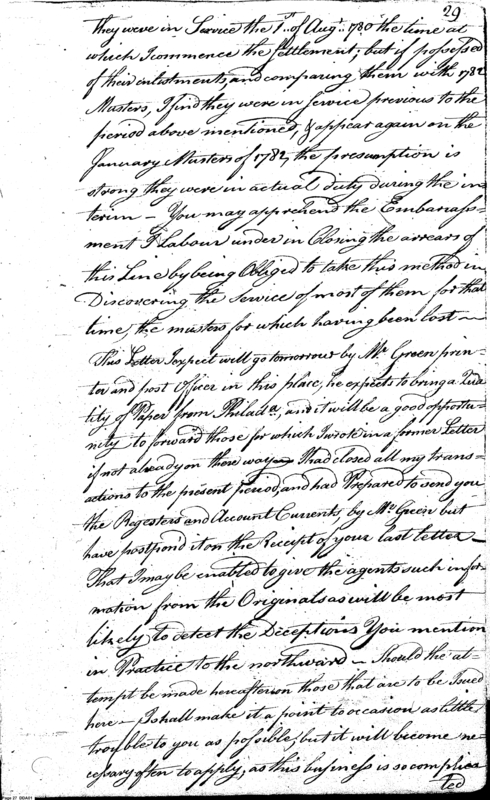 29
they were in Service the 1st. of Augt. 1780 the time at
which I commence the Settlement; but if possessed
of their enlistments, and comparing them with 1782
Musters, I find they were in service previous to the
period above mentioned, & appear again on the
January Musters of 1782, the presumption is
strong they were in actual duty during the in=
terim — You may apprehend the Embarrass-
ment I Labour under in Closing the arrears of
this Line by being Obliged to take this method in
Discovering the Service of most of them for that
time, the musters for which having been lost —
This Letter I expect will go tomorrow by Mr. Green prin-
ter and post Officer in this place, he expects to bring a Qua
tity of Paper from Philada., and it will be a good opportu-
nity to forward those for which I wrote in a former Letter
if not already on those way I had closed all my trans-
actions to the present period, and had Prepared to send you
the Regesters and Account Currents, by Mr. Green but
have postpon'd it on the Receipt of your last letter —
That I may be enabled to give the agents such infor-
mation from the Originals as will be most
likely to detect the Deceptions You mention
in Practice to the northward — Should the at=
tempt be made hereafter on those that are to be Issued
here — I shall make it a point to occasion as little
trouble to you as possible, but it will become ne-
cessary often to apply, as this business is so complica
ted
Page 27 BDA01